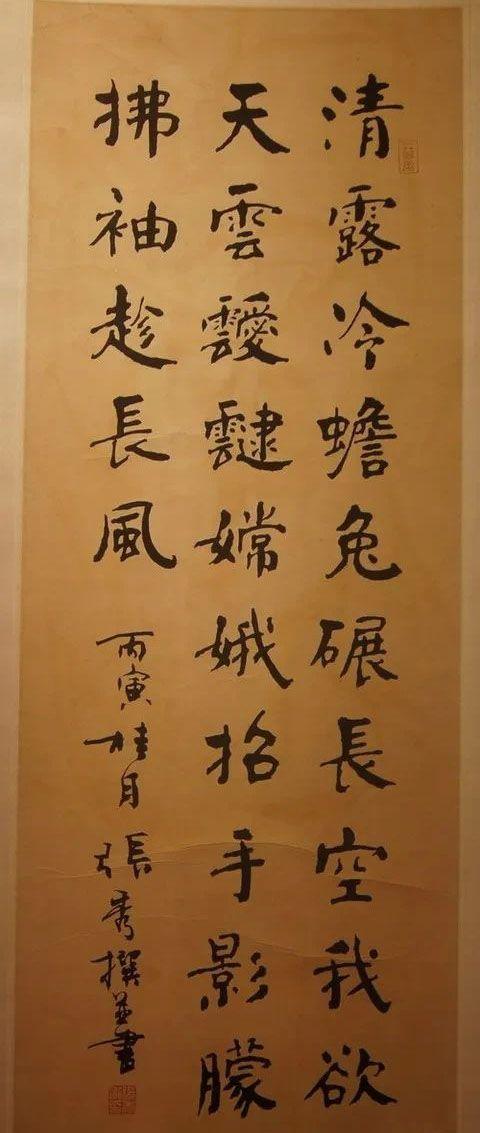 清露冷蟾兔碾長空我欲
天雲靉靆嫦娥招手影朦
拂袖趁長風
丙寅桂月張秀撰並書